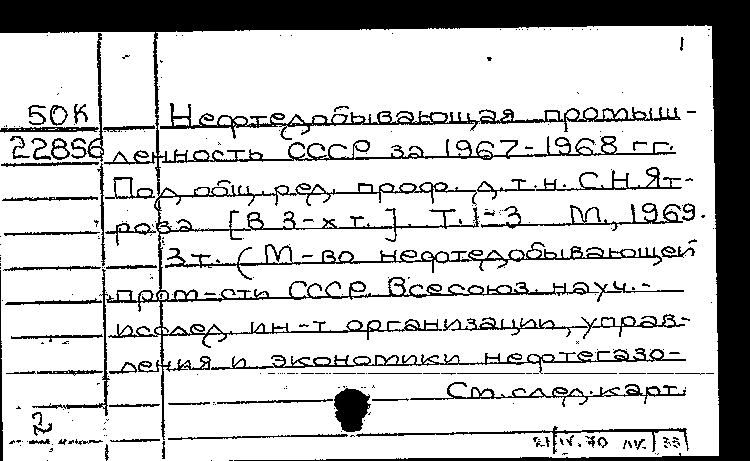 1
50К Нефтедобывающая промыш-
22856 ленность СССР за 1967-1968 гг.
Под общ. ред. проф. д.т.н. С.Н.Ят-
рова [В 3-х т.]. Т.1-3 М., 1969.
3т. (М-во нефтедобывающей
пром-сти СССР. Всесоюз. науч.-
исслед. ин-т организации, управ-
ления и экономики нефтегазо-
См. след. карт.
2
21 IV. 70 33